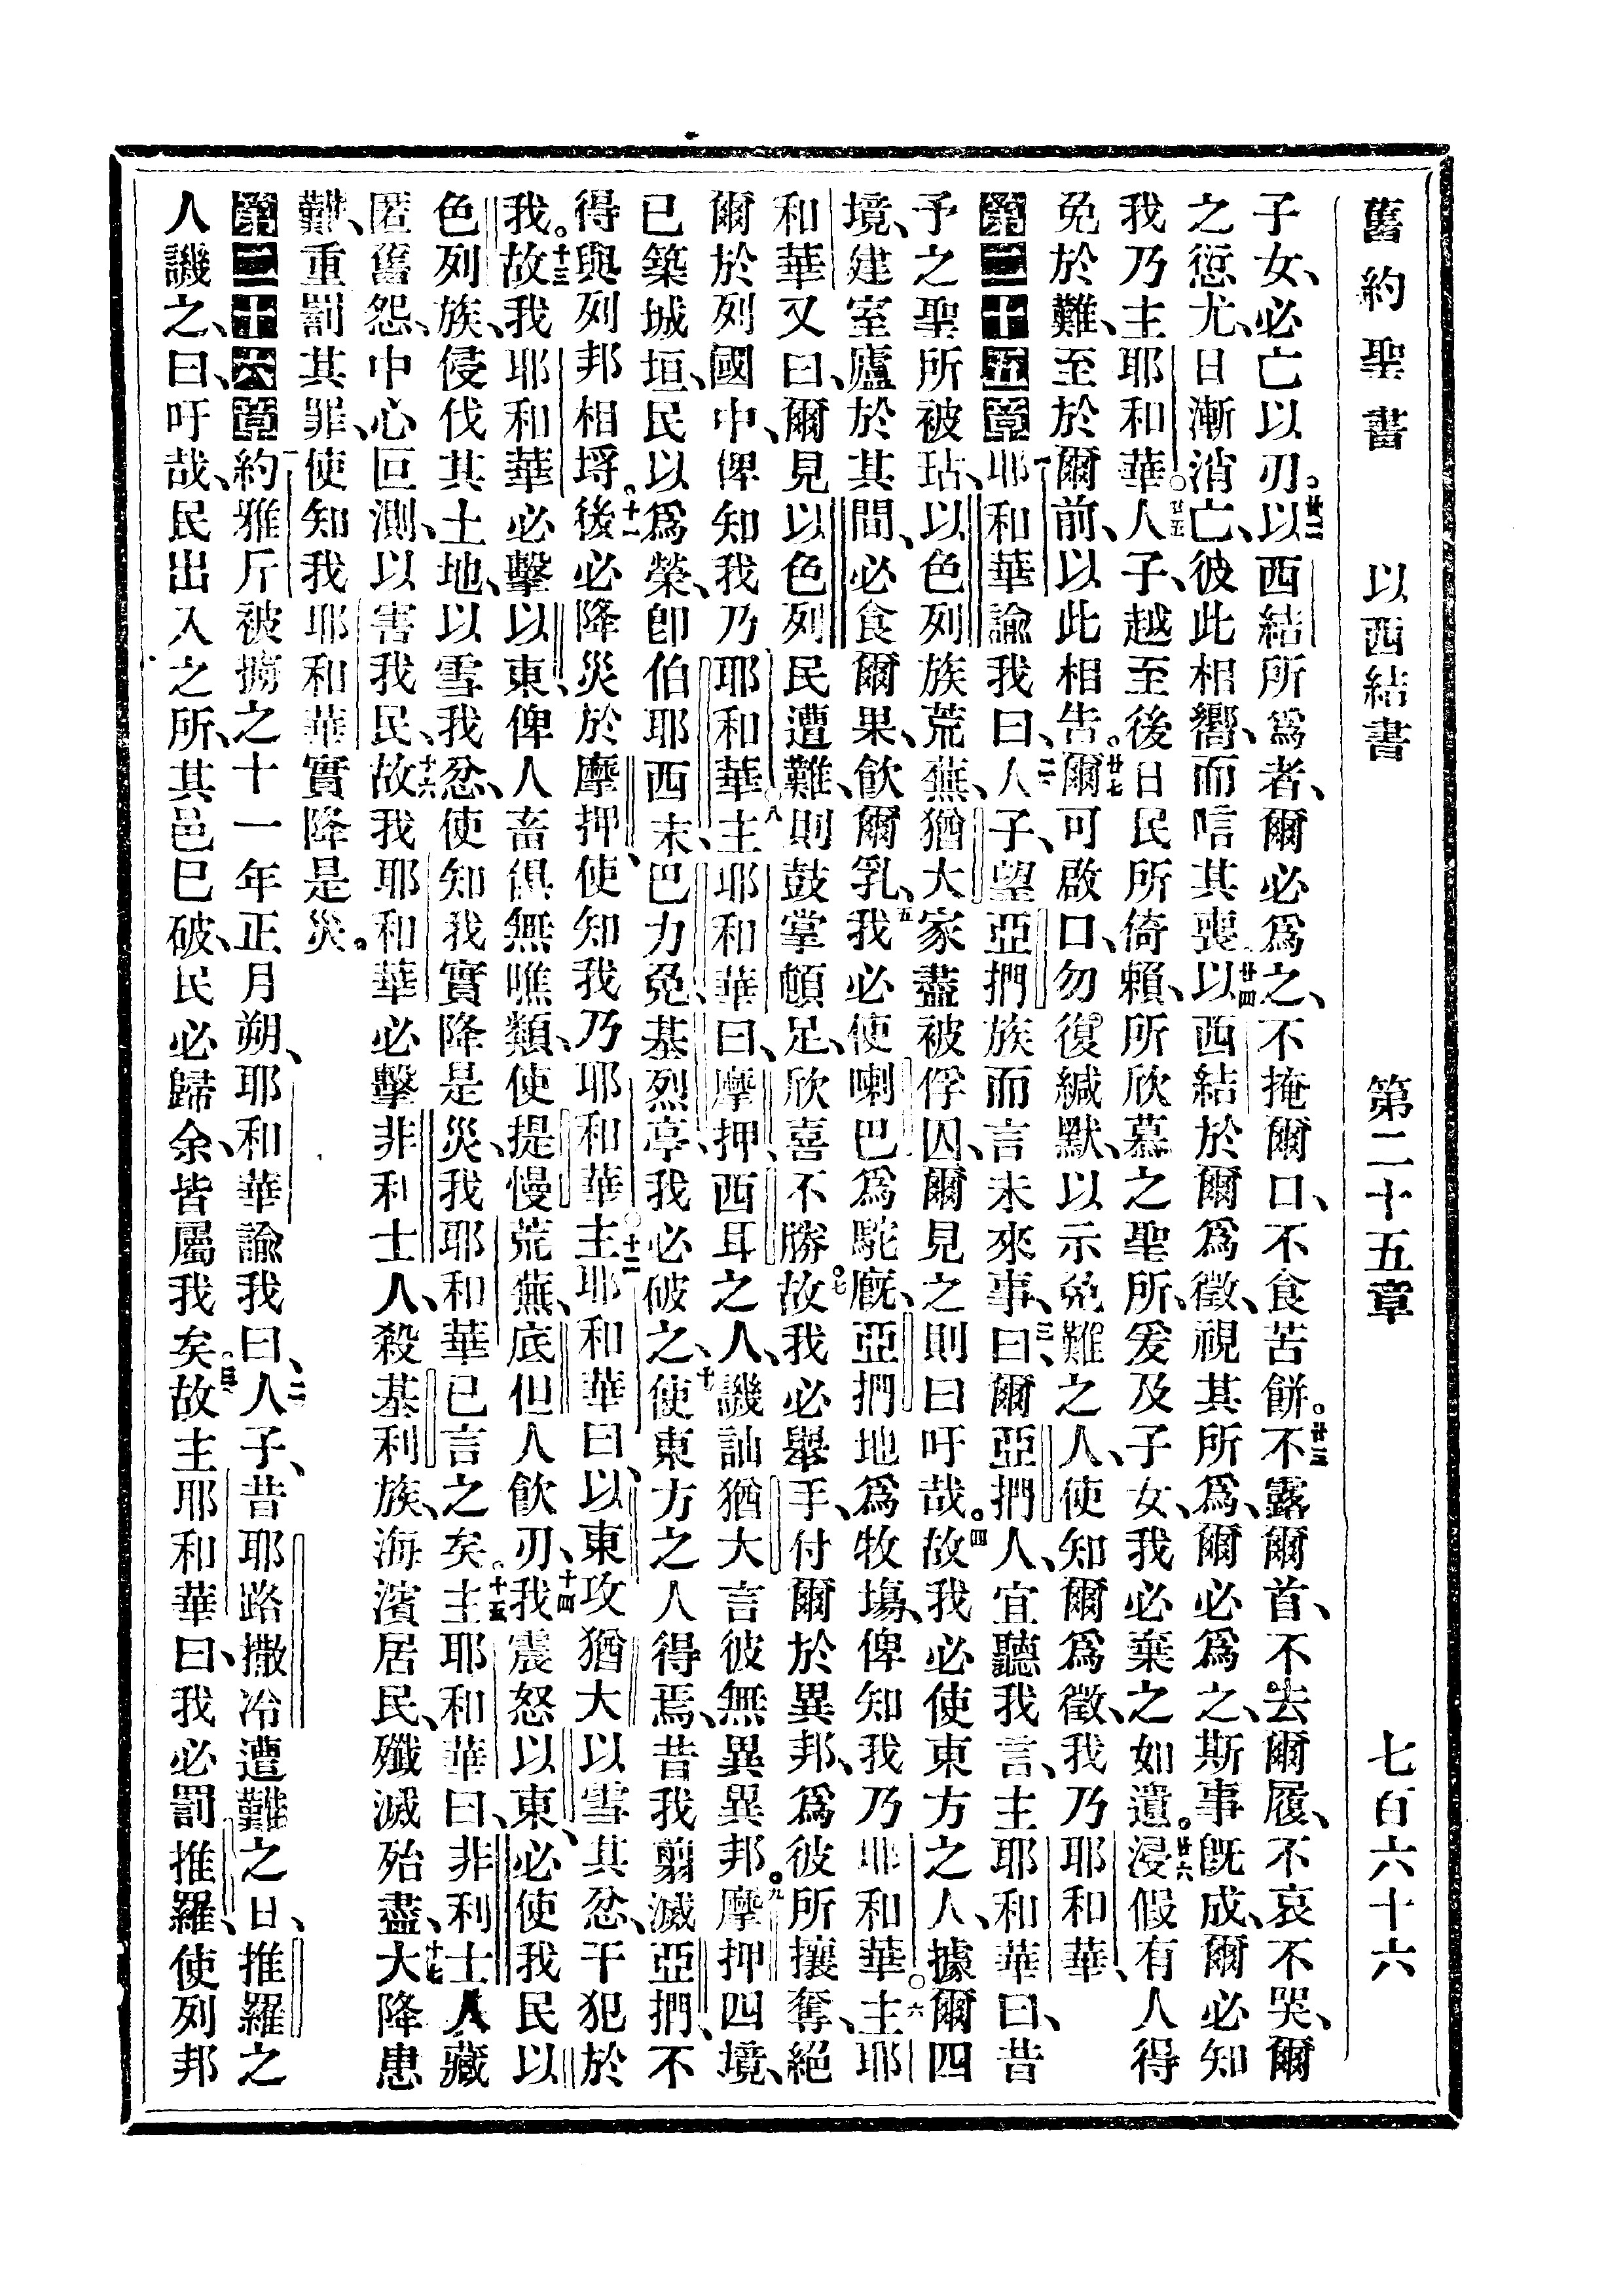 舊約聖書 以西結書 第二十五章 七百六十六
子女、必亡以刃。廿二以西結所爲者、爾必爲之、不掩爾口、不食苦餅。廿三不露爾首、不去爾履、不哀不哭、爾
之愆尤、日漸消亡、彼此相嚮、而唁其喪、廿四以西結於爾爲徵、視其所爲、爾必爲之、斯事旣成、爾必知
我乃主耶和華。廿五人子、越至後日、民所倚賴、所欣慕之聖所、爰及子女、我必棄之如遺。廿六浸假有人得
免於難、至於爾前、以此相告。廿七爾可啟口、勿復緘默、以示免難之人、使知爾爲徵、我乃耶和華、
第二十五章一耶和華諭我曰、二人子、望亞捫族而言未來事、三曰、爾亞捫人、宜聽我言、主耶和華曰、昔
予之聖所被玷、以色列族荒蕪、猶大家盡被俘囚、爾見之則曰吁哉。四故我必使東方之人、據爾四
境、建室廬於其間、必食爾果、飲爾乳、五我必使喇巴爲駝廐、亞捫地爲牧場、俾知我乃耶和華。六主耶
和華又曰、爾見以色列民遭難、則鼓掌頓足、欣喜不勝。七故我必舉手、付爾於異邦、爲彼所攘奪、絕
爾於列國中、俾知我乃耶和華。八主耶和華曰、摩押西耳之人、譏訕猶大、言彼無異異邦。九摩押四境、
已築城垣、民以爲榮、卽伯耶西末、巴力免、基烈亭、我必破之、十使東方之人得焉、昔我翦滅亞捫、不
得與列邦相埒。十一後必降災於摩押、使知我乃耶和華。十二主耶和華曰、以東攻猶大、以雪其忿、干犯於
我。十三故我耶和華必擊以東、俾人畜俱無噍類、使提慢荒蕪、底但人飲刃、十四我震怒以東、必使我民以
色列族、侵伐其土地、以雪我忿、使知我實降是災、我耶和華已言之矣。十五主耶和華曰、非利士人藏
匿舊怨、中心叵測、以害我民、十六故我耶和華必擊非利士人、殺基利族、海濱居民、殲滅殆盡、十七大降患
難、重罰其罪、使知我耶和華實降是災。
第二十六章一約雅斤被擄之十一年正月朔、耶和華諭我曰、二人子、昔耶路撒冷遭難之日、推羅之
人譏之、曰、吁哉、民出入之所、其邑已破、民必歸余、皆屬我矣。三故主耶和華曰、我必罰推羅、使列邦